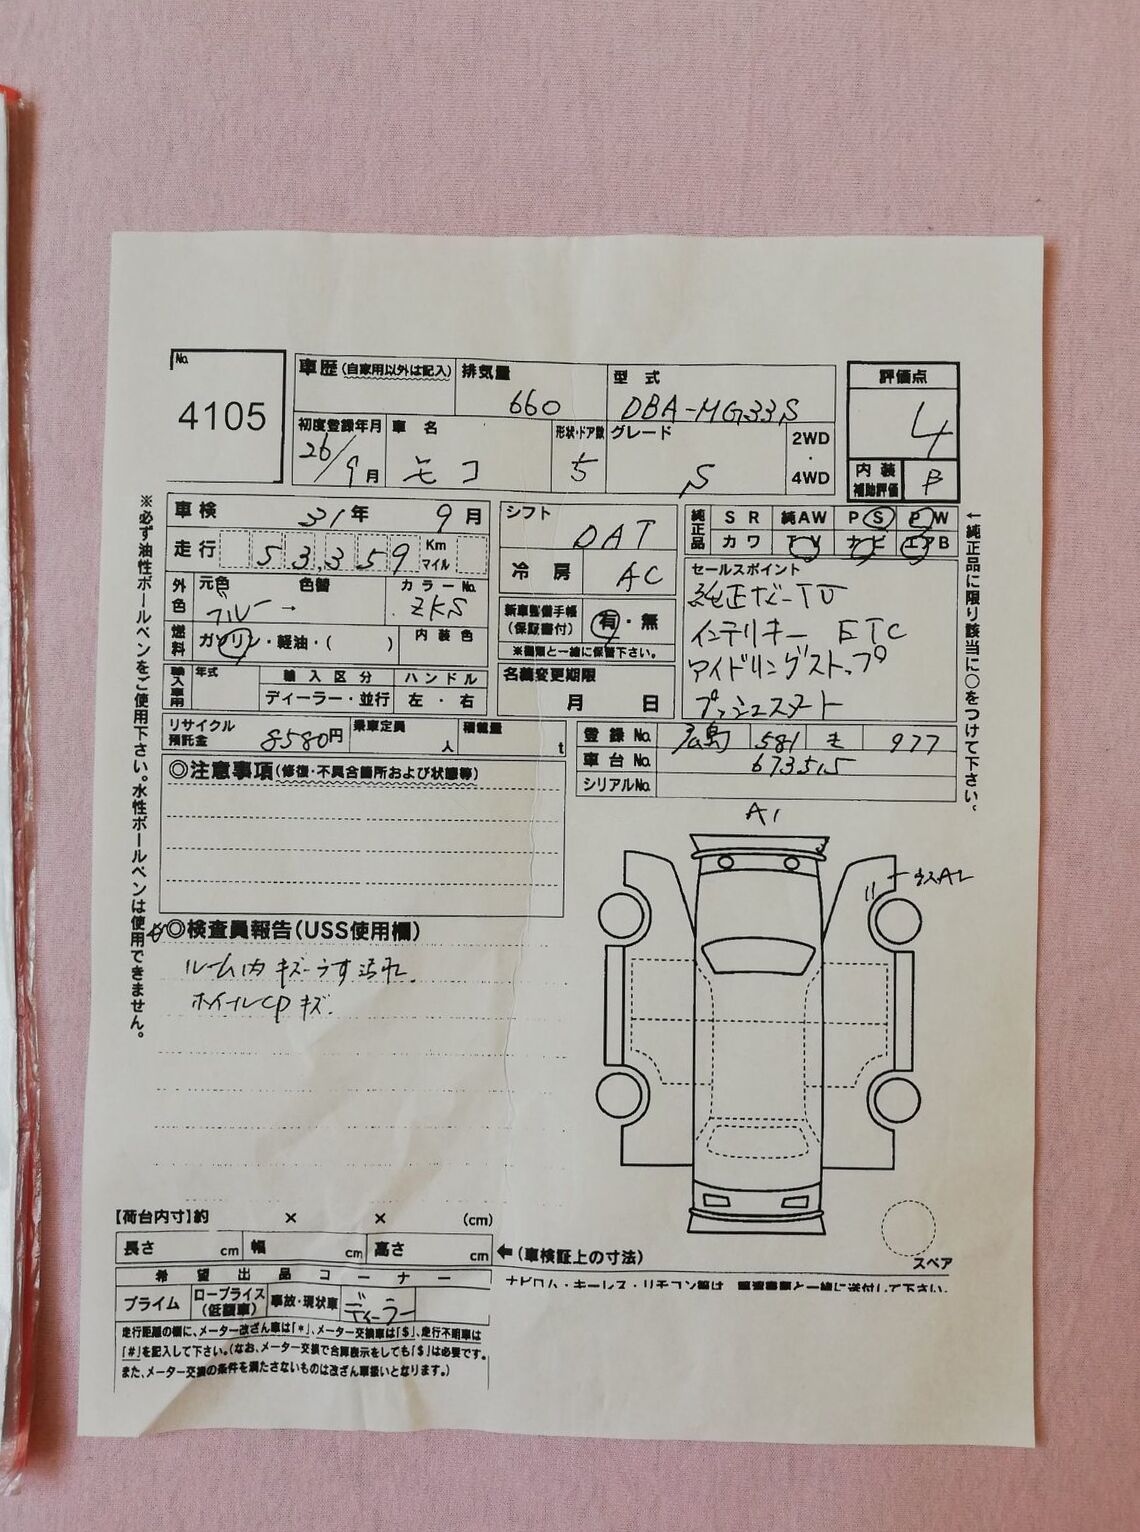 No.
4105
車歴(自家用以外は記入)
排気量
660
型式
DBA-MG33S
初度登録年月
26/9月
車名
モコ
形状・ドア数
5
グレード
S
2WD
・
4WD
評価点
4
内装
補助評価
B
※必ず油性ボールペンをご使用下さい。水性ボールペンは使用できません。
車検 31年 9月
走行 53,359 Km
マイル
外色
元色 色替
ブルー→
カラーNo.
ZKS
燃料
ガソリン・軽油・( )
内装色
輸入車用
年式
輸入区分
ディーラー・並行
ハンドル
左・右
シフト
DAT
冷房
AC
新車整備手帳
(保証書付)
有・無
※書類と一緒に保管下さい。
名義変更期限
月 日
純正品
SR 純AW PS PW
カワ TV ナビ エアB
セールスポイント
純正ナビ-TV
インテリキー ETC
アイドリングストップ
プッシュスタート
←純正品に限り該当に○をつけて下さい。
リサイクル
預託金
8580円
乗車定員
人
積載量
t
登録No. 広島 581 977
車台No. 673515
シリアルNo.
◎注意事項(修復・不具合箇所および状態等)
A1
ウスA2
◎検査員報告(USS使用欄)
ルーム内キズ-うす汚れ.
ホイールCPキズ.
【荷台内寸】約 × × (cm)
長さ cm 幅 cm 高さ cm
←(車検証上の寸法)
スペア
希望出品コーナー
プライム
ロープライス
(低額車)
事故・現状車
ディーラー
走行距離の欄に、メーター改ざん車は「*」、メーター交換車は「$」、走行不明車は
「#」を記入して下さい。(なお、メーター交換で合算表示をしても「$」は必要です。
また、メーター交換の条件を満たさないものは改ざん車扱いとなります。)